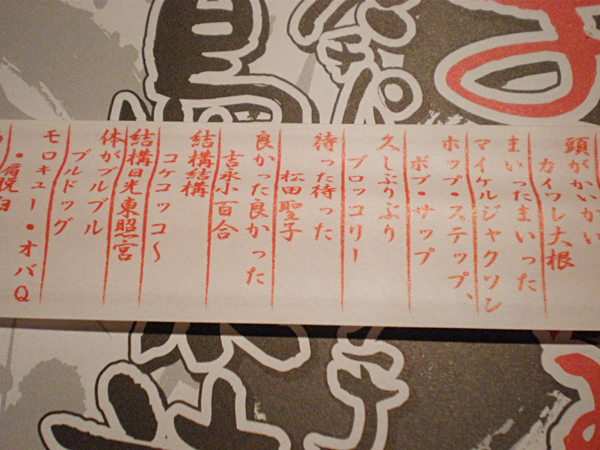 頭がかいかい
カイワレ大根
まいったまいった
マイケルジャクソン
ホップ・ステップ、
ボブ・サップ
久しぶりぶり
ブロッコリー
待った待った
松田聖子
良かった良かった
吉永小百合
結構結構
コケコッコ〜
結構日光東照宮
体がブルブル
ブルドッグ
モロキュー・オバQ
・肩脱臼